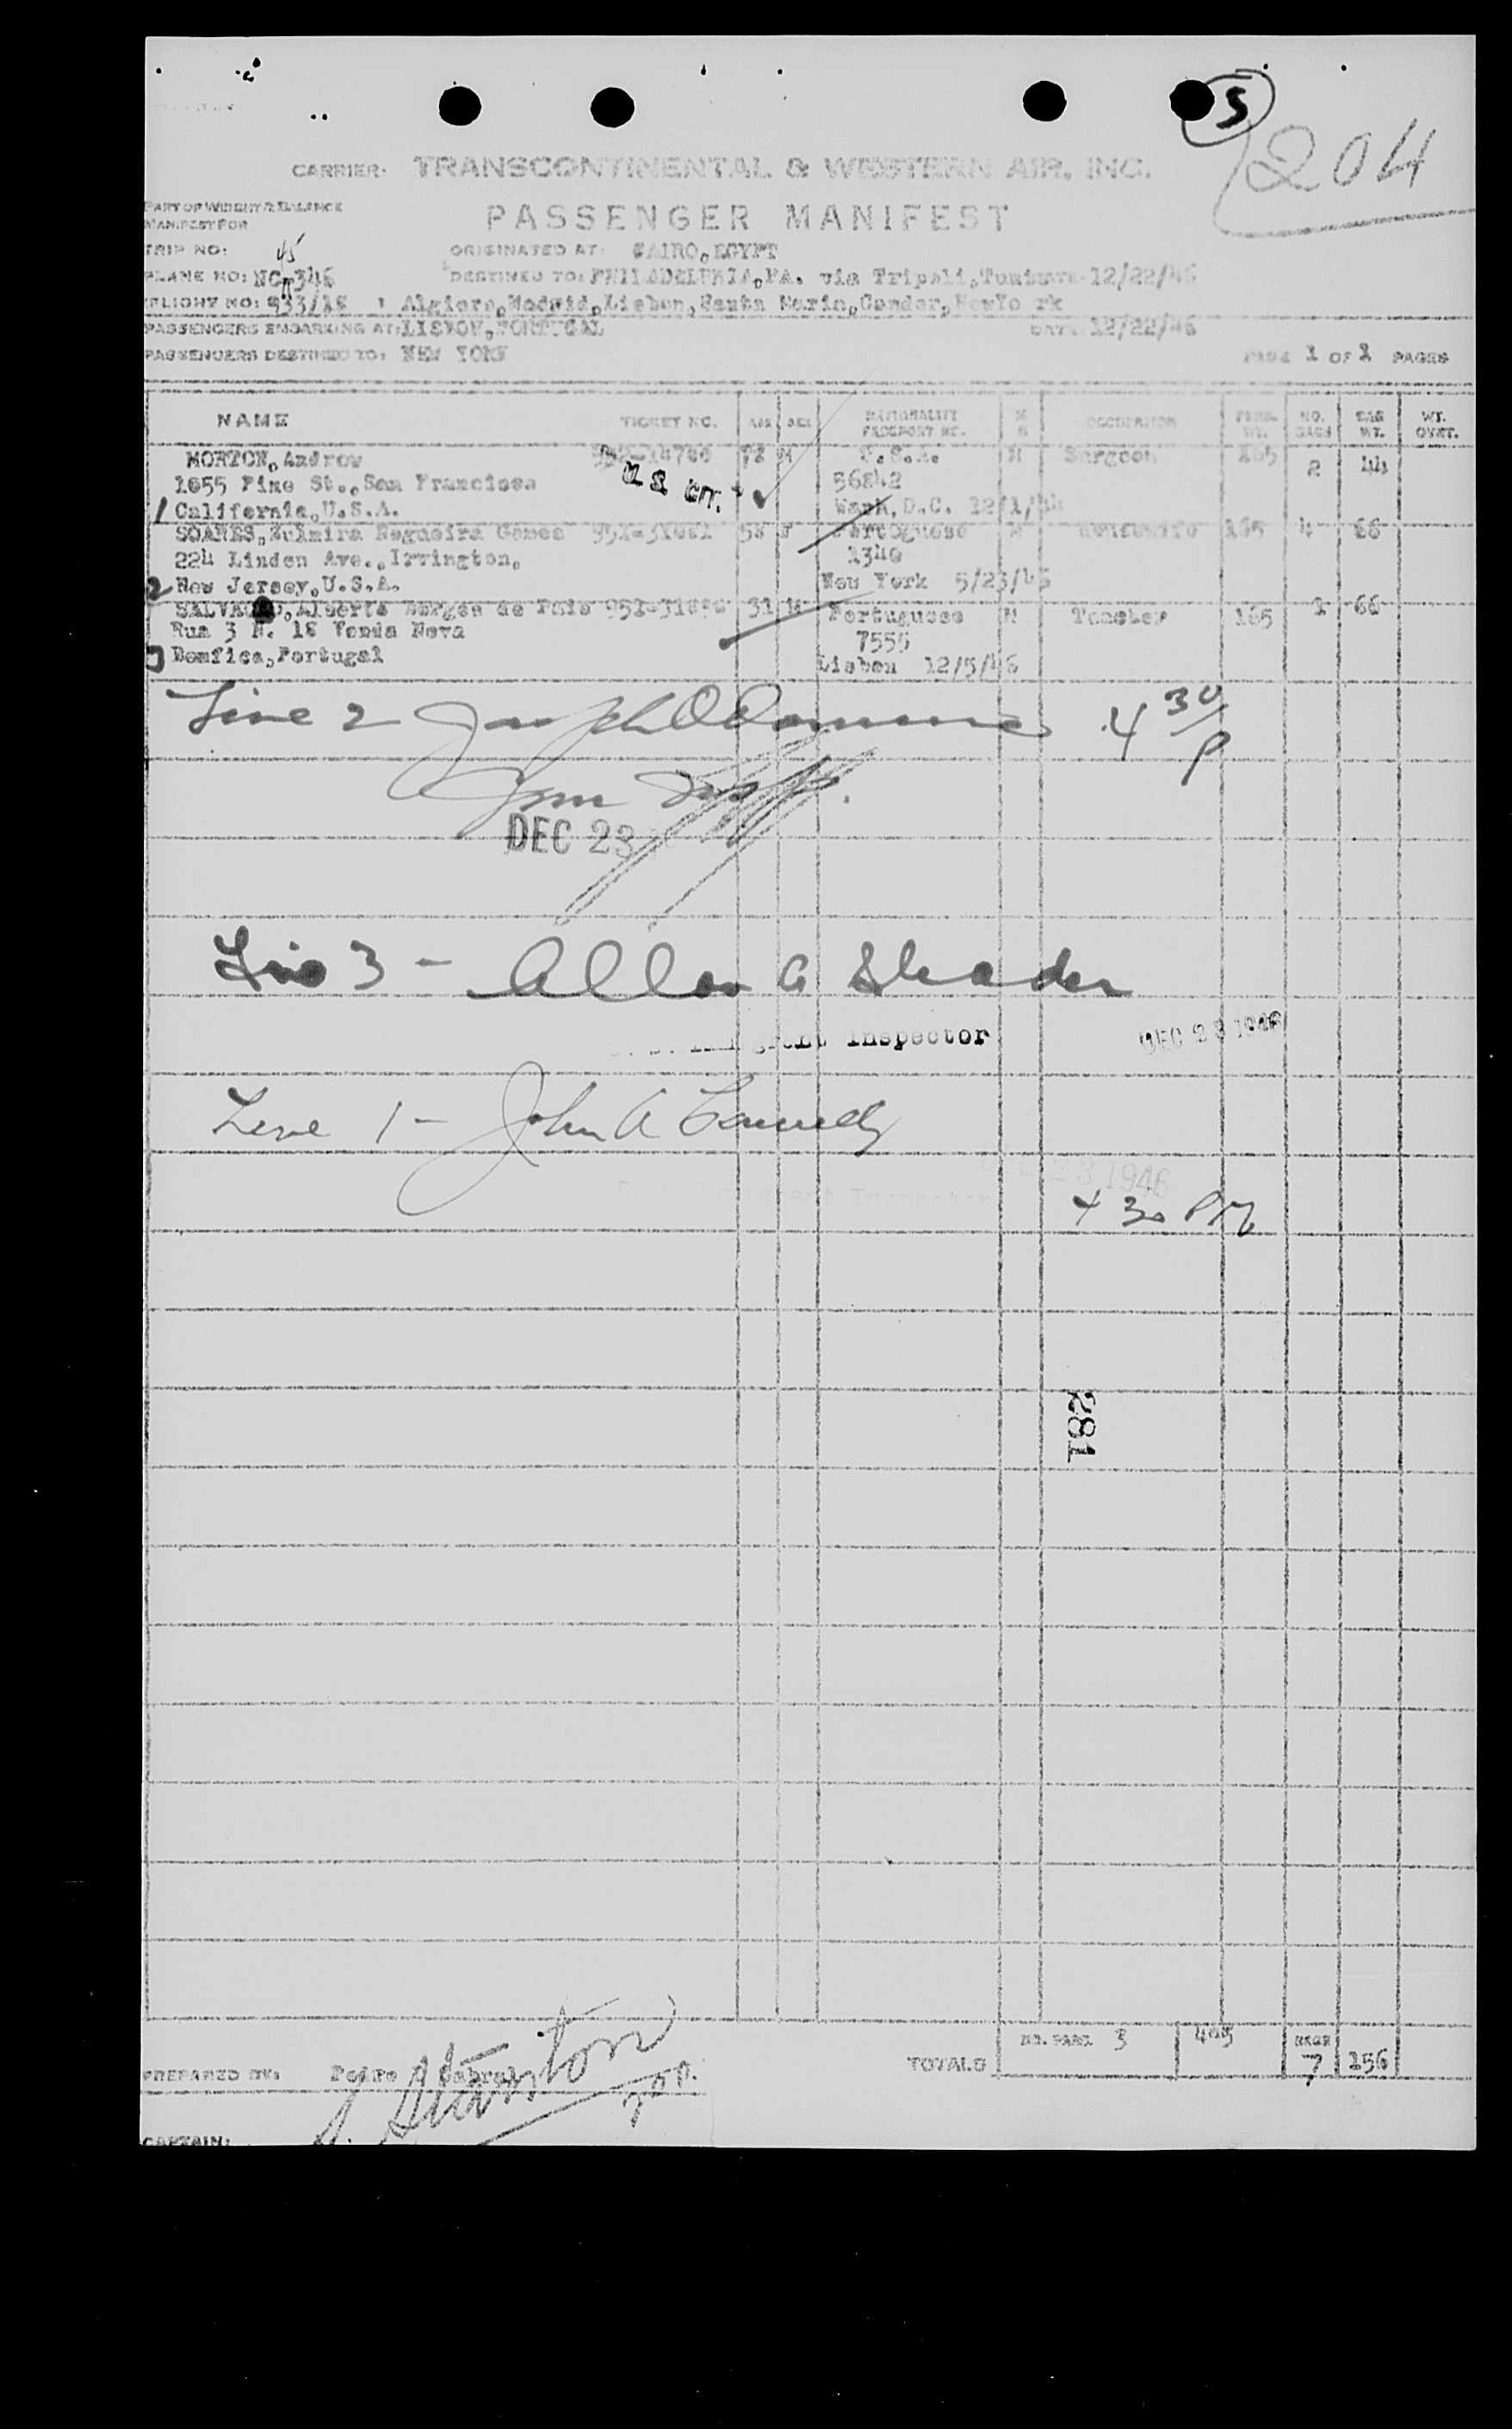 5
204
CARRIER: TRANSCONTINENTAL & WESTERN AIR, INC.
PART OF WEIGHT & BALANCE
MANIFEST FOR
PASSENGER MANIFEST
TRIP NO: ORIGINATED AT: CAIRO, EGYPT
PLANE NO: NC 346 DESTINED TO: PHILADELPHIA, PA. via Tripoli, 12/22/46
FLIGHT NO: 933/18 Algiers, Madrid, Lisbon, Santa Maria, Gander, NewYo rk
PASSENGERS EMBARKING AT: LISBON, PORTUGAL DATE 12/22/46
PASSENGERS DESTINED TO: NEW YORK PAGE 1 OF 1 PAGES
NAME TICKET NO. AGE SEX NATIONALITY PASSPORT NO. OCCUPATION PASS. WT. NO. BAGS BAG WT. WT. OVRT.
MORTON, Andrew 72 M U.S.A. Surgeon 165 2 44
1655 Pine St., San Francisco U S CIT. 56842
1 California, U.S.A. Wash, D.C.
SOARES, Zulmira Nogueira Gomes 58 F Portuguese Housewife 165 4 66
224 Linden Ave., Irvington,
2 New Jersey, U.S.A. New York 5/23/46
Alberto Borges de 31 M Portuguese Teacher 165 1 66
Rua 3 N. 18 Venda Nova 7555
3 Bemfica, Portugal Lisbon 12/5/46
Line 2 Joseph 4 30/P
Imm Insp.
DEC 23
Line 3 - Allen A Shader
Inspector DEC 23 1946
Line 1 - John A Kennedy
DEC 23 1946
4 30 PM
281
TOTALS NO. PASS. 3 495 BAGS 7 156
PREPARED BY: Pedro A Cabral
CAPTAIN: